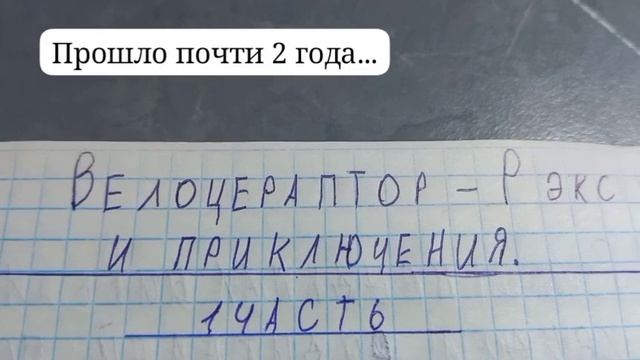 Прошло почти 2 года...
ВЕЛОЦЕРАПТОР – РЭКС
И ПРИКЛЮЧЕНИЯ.
1 ЧАСТЬ